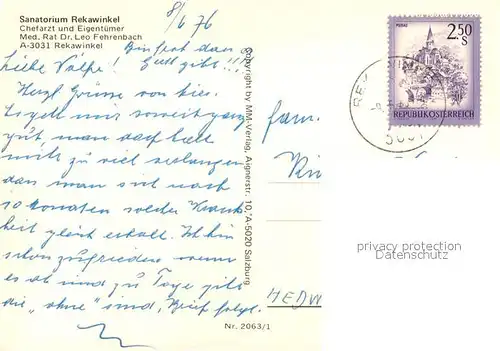 Sanatorium Rekawinkel
Chefarzt und Eigentümer
Med. Rat Dr. Leo Fehrenbach
A-3031 Rekawinkel
8/6 76
Bin froh dass
Liebe Valpe! Gell gibt!!!
Herzl Grüsse von hier.
geht mir soweit ganz
gut, man darf halt
nicht zu viel verlangen
dass man nach
10 Monaten solcher Krank
heit gleich erholt. Ich bin
schon zufrieden wenn
es ab und zu Tage gibt
die „ohne" sind, Brief folgt.
Nr. 2063/1
Copyright by MM-Verlag, Aignerstr. 10, A-5020 Salzburg
Fam.
MURAU
2.50
S
REPUBLIK ÖSTERREICH
privacy protection
Datenschutz